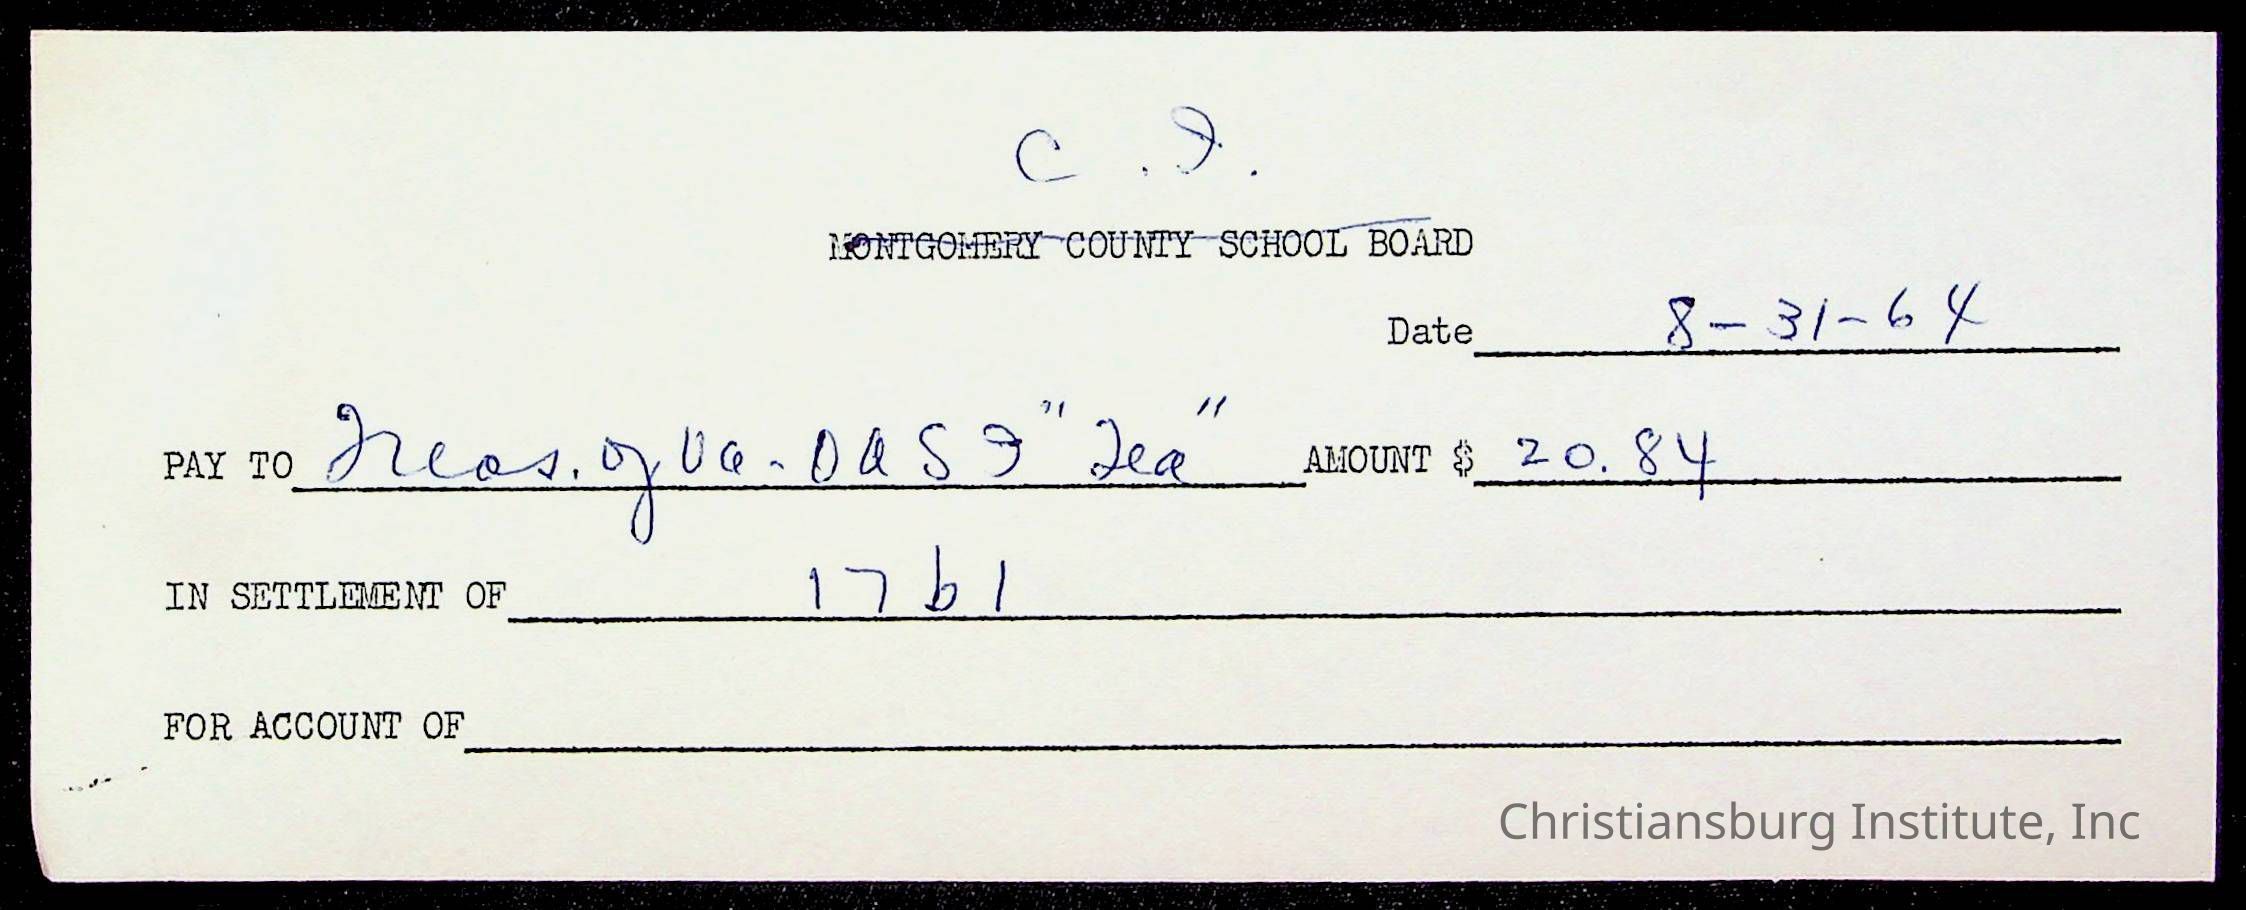 C.I.
MONTGOMERY COUNTY SCHOOL BOARD
Date 8-31-64
PAY TO Treas. of Va. OASI "Tea" AMOUNT $ 20.84
IN SETTLEMENT OF 17b1
FOR ACCOUNT OF
Christiansburg Institute, Inc